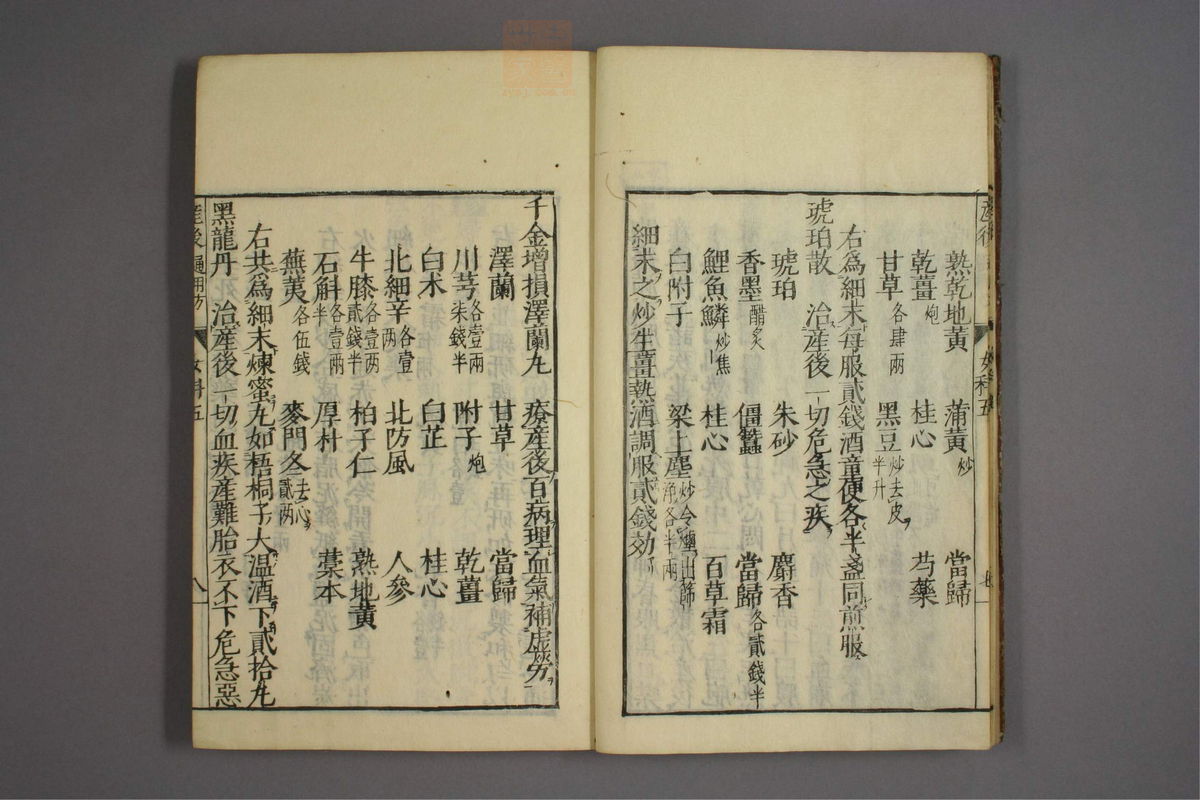 熟乾地黃 蒲黃炒 當歸
乾薑炮 桂心 芍藥
甘草各肆兩 黑豆炒去皮半升
右為細末每服貳錢酒童便各半盞同煎服
琥珀散 治產後一切危急之疾
琥珀 朱砂 麝香
香墨醋炙 僵蠶 當歸各貳錢半
鯉魚鱗炒焦 桂心 百草霜
白附子 梁上塵炒令煙出篩淨各半兩
細末之炒生薑熱酒調服貳錢効
千金增損澤蘭丸 療產後百病理血氣補虛勞
澤蘭 甘草 當歸
川芎各壹兩柒錢半 附子炮 乾薑
白术 白芷 桂心
北細辛各壹兩 北防風 人參
牛膝各壹兩貳錢半 柏子仁 熟地黃
石斛各壹兩半 厚朴 藁本
蕪荑各伍錢 麥門冬去心貳兩
右共爲細末煉蜜丸如梧桐子大温酒下貳拾丸
黑龍丹 治產後一切血疾產難胎衣不下危急惡
產後通用方 女科五 八